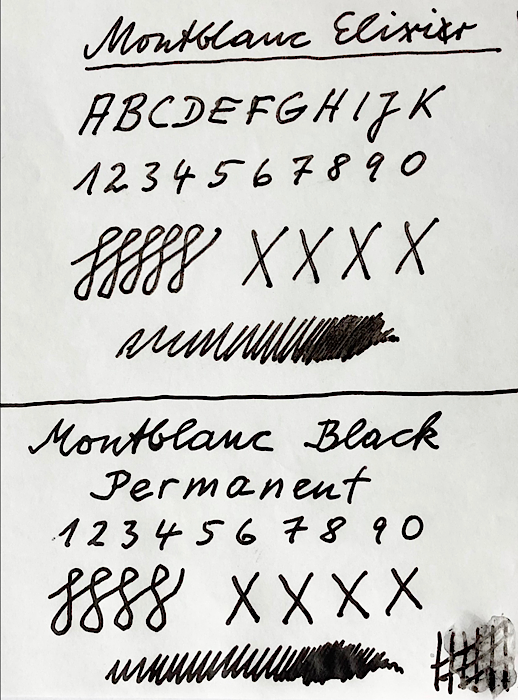 Montblanc Elixixr
ABCDEFGHIJK
1234567890
XXXX
Montblanc Black
Permanent
1234567890
XXXX